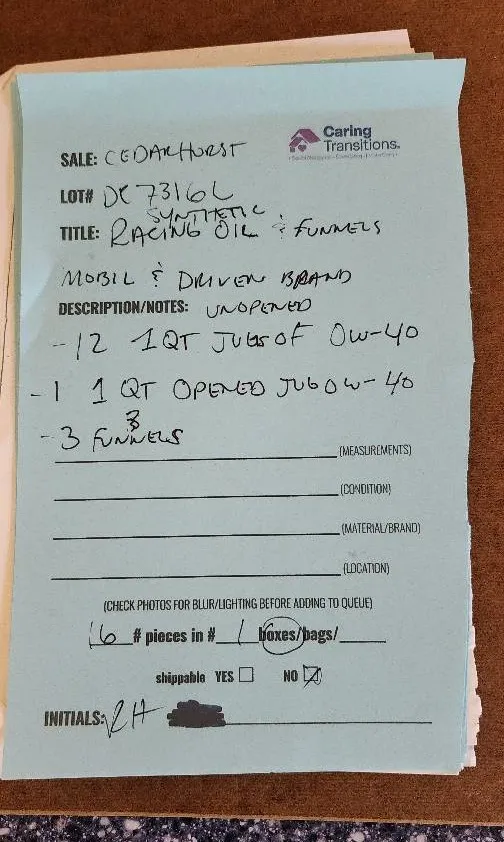 Caring
Transitions.
SALE: CEDARHURST
LOT# DC7316L
SYNTHETIC
TITLE: RACING OIL & FUNNELS
MOBIL & DRIVEN BRAND
DESCRIPTION/NOTES: UNOPENED
-12 1QT JUGS OF 0W-40
-1 1 QT OPENED JUG 0W-40
3
-3 FUNNELS
(MEASUREMENTS)
(CONDITION)
(MATERIAL/BRAND)
(LOCATION)
(CHECK PHOTOS FOR BLUR/LIGHTING BEFORE ADDING TO QUEUE)
16 # pieces in # 1 boxes/bags/
shippable YES NO
INITIALS: RH